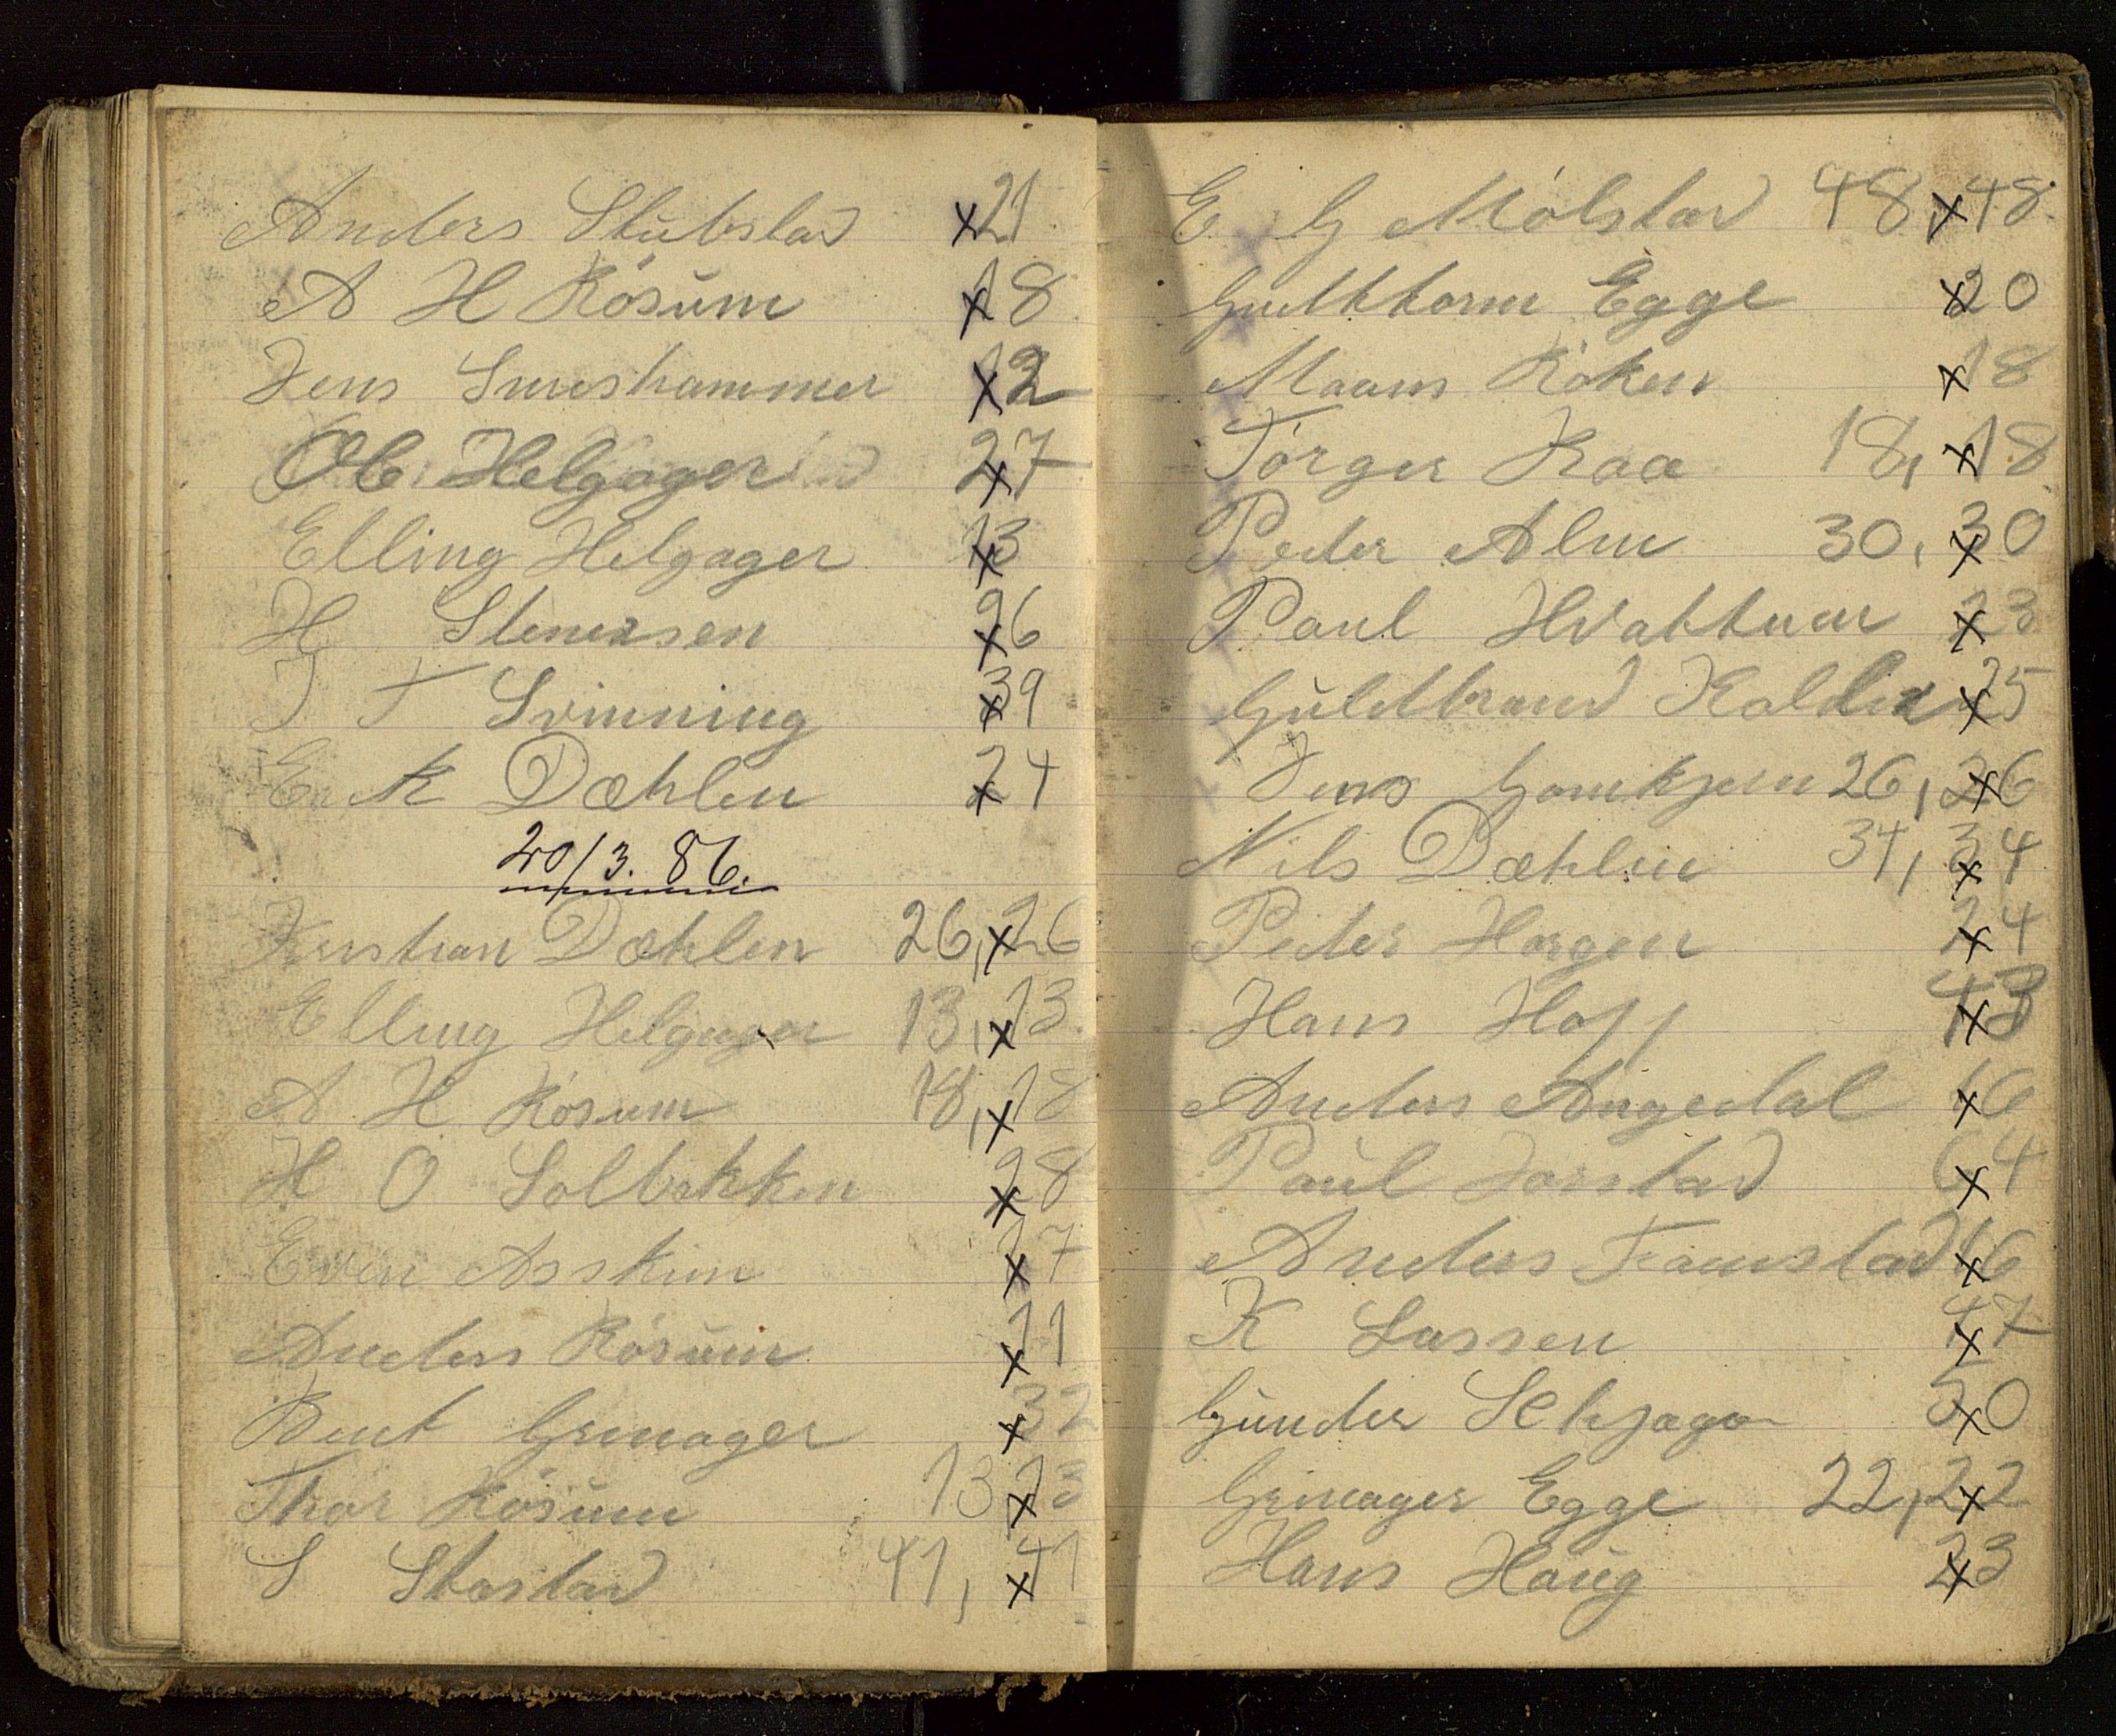 Anders Stubstad x21
A H Rösum x18
Jens Smeshammer x12
Ole Helgager 27
Elling Helgager 13
H Stenersen 26
J T Svinning 39
E K Dæhlen 24
20/3. 86.
Kristian Dæhlen 26, x26
Elling Helgager 13, x13
A H Rösum 18, x18
H O Solbakken x28
Even Askim x17
Anders Rösum x11
Bent Grinager x32
Thor Rösum 13 x13
S Stastad 41, x41
E G Mölstad 48, x48
Gudttorm Egge x20
Maans Röken x18
Törger Kaa 18, x18
Peder Alm 30, x30
Paul Hvattum x23
Guldbrand Kolden x25
Jens Gamkjern 26, x26
Nils Dæhlen 34, x34
Peder Horgen x24
Hans Hoff x43
Anders Angedal x16
Paul Jorstad x64
Anders Framstad x16
K Lassen x47
Gunder x50
Grinager Egge 22, x22
Hans Haug x23